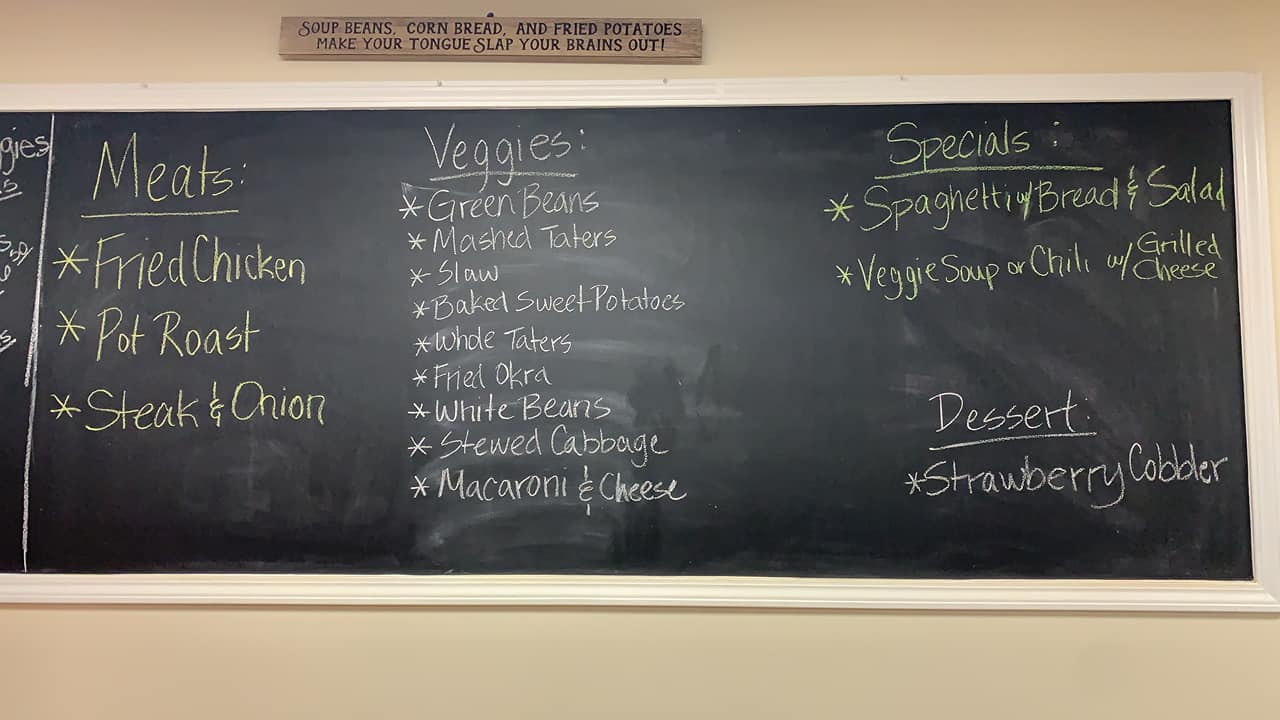 SOUP BEANS, CORN BREAD, AND FRIED POTATOES
MAKE YOUR TONGUE SLAP YOUR BRAINS OUT!
Meats:
* Fried Chicken
* Pot Roast
* Steak & Onion
Veggies:
* Green Beans
* Mashed Taters
* Slaw
* Baked Sweet Potatoes
* Whole Taters
* Fried Okra
* White Beans
* Stewed Cabbage
* Macaroni & Cheese
Specials:
* Spaghetti w/ Bread & Salad
* Veggie Soup or Chili w/ Grilled
Cheese
Dessert:
* Strawberry Cobbler